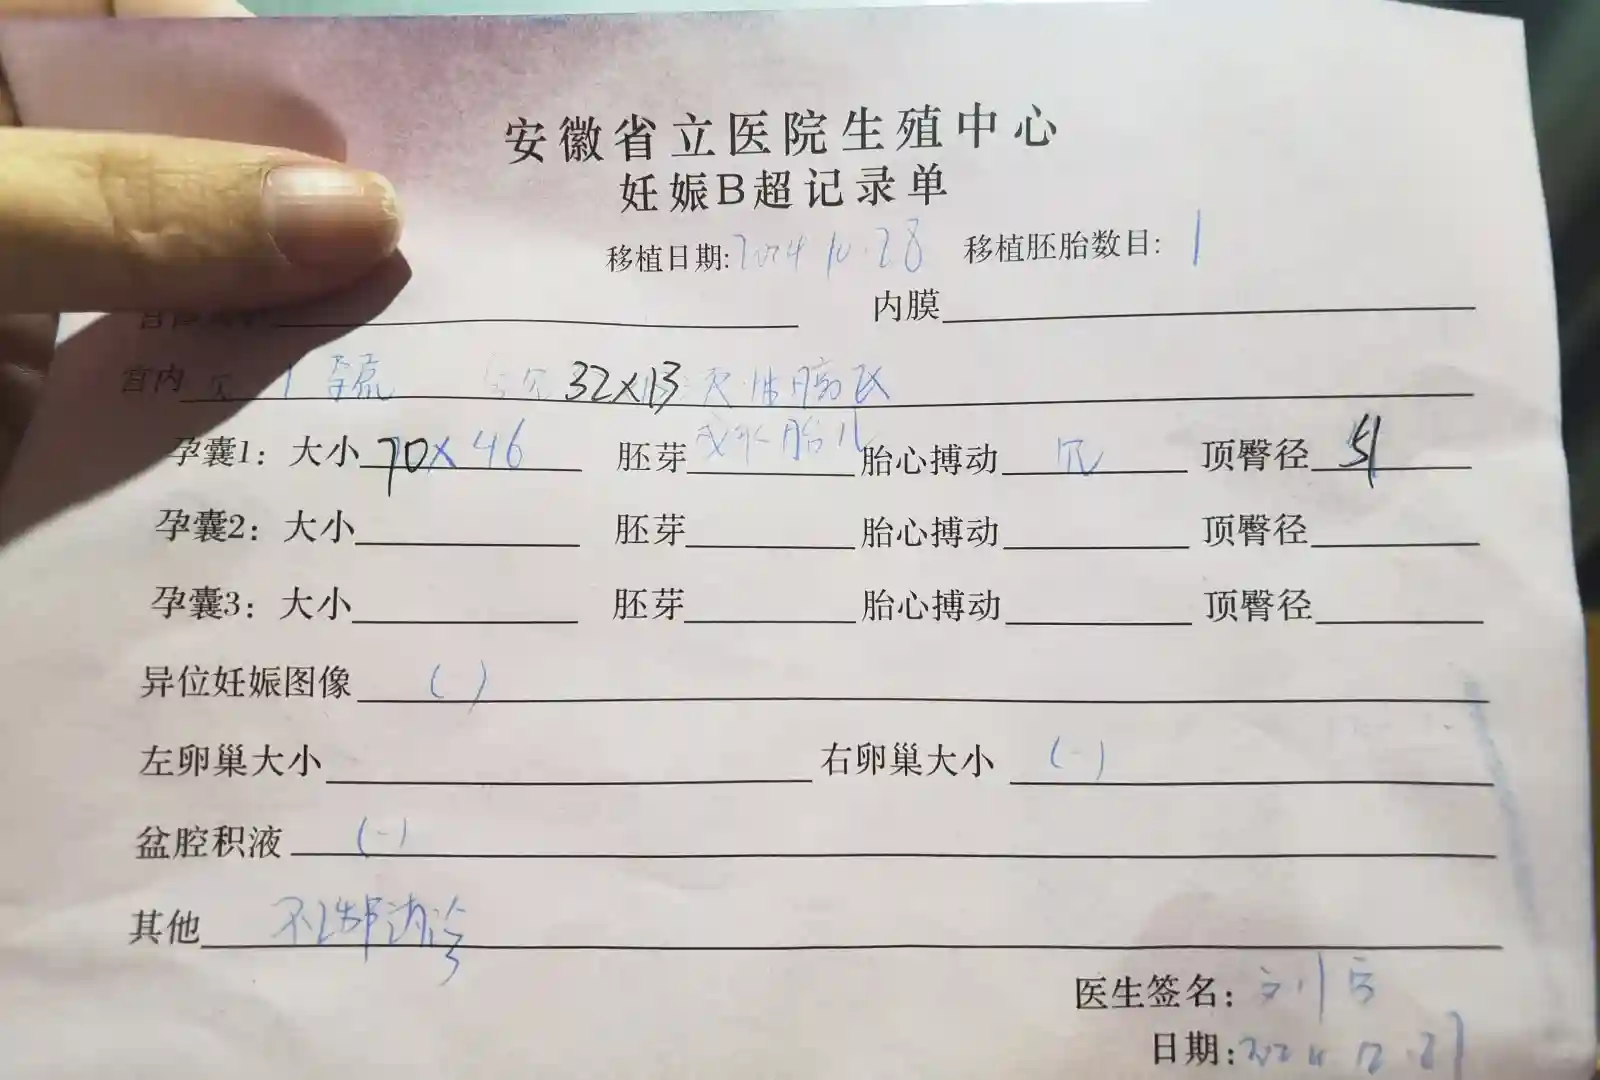 安徽省立医院生殖中心
妊娠B超记录单
移植日期:2024 10.28 移植胚胎数目: 1
内膜
宫内 见 1 孕囊 32×13
孕囊1: 大小 70×46 胚芽 成形胎儿 胎心搏动 见 顶臀径 51
孕囊2: 大小 胚芽 胎心搏动 顶臀径
孕囊3: 大小 胚芽 胎心搏动 顶臀径
异位妊娠图像 ( )
左卵巢大小 右卵巢大小 (-)
盆腔积液 (-)
其他
医生签名:
日期:2024.12.27